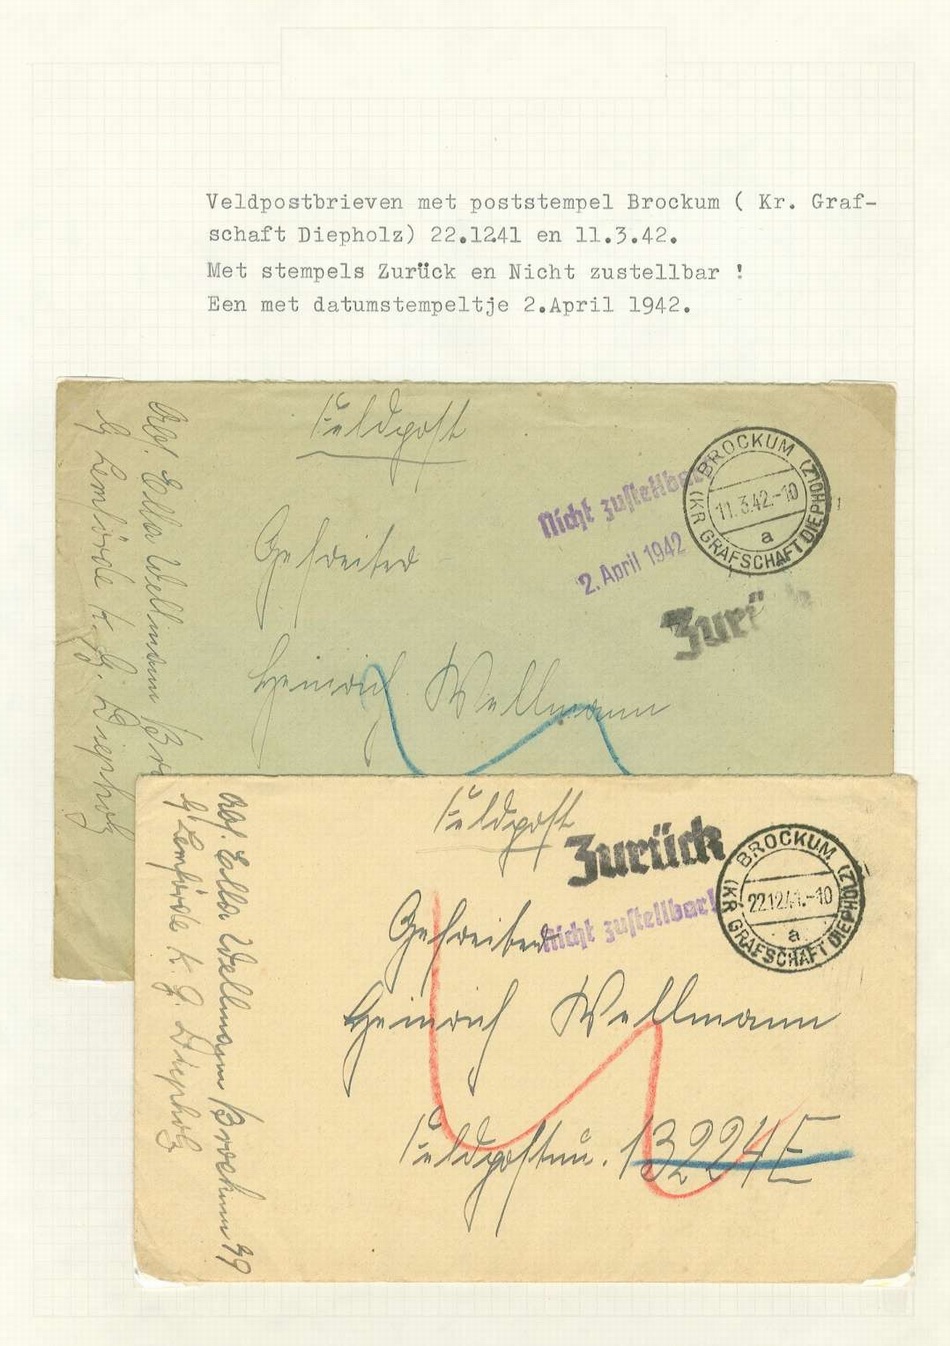 Veldpostbrieven met poststempel Brockum ( Kr. Graf-
schaft Diepholz) 22.1241 en 11.3.42.
Met stempels Zurück en Nicht zustellbar !
Een met datumstempeltje 2.April 1942.
Feldpost
Gefreiter
Heinrich Wellmann
Abs. Ella Wellmann Bro
b/ Lemförde K. G. Diepholz
Nicht zustellbar
2. April 1942
Zurück
BROCKUM
11.3.42.-10
a
(KR GRAFSCHAFT DIEPHOLZ)
Feldpost
Zurück
Nicht zustellbar!
BROCKUM
22.12.41.-10
a
(KR GRAFSCHAFT DIEPHOLZ)
Gefreiter
Heinrich Wellmann
Feldpostnu. 13224E
Abs. Ella Wellmann Brockum 99
b/ Lemförde K. G. Diepholz